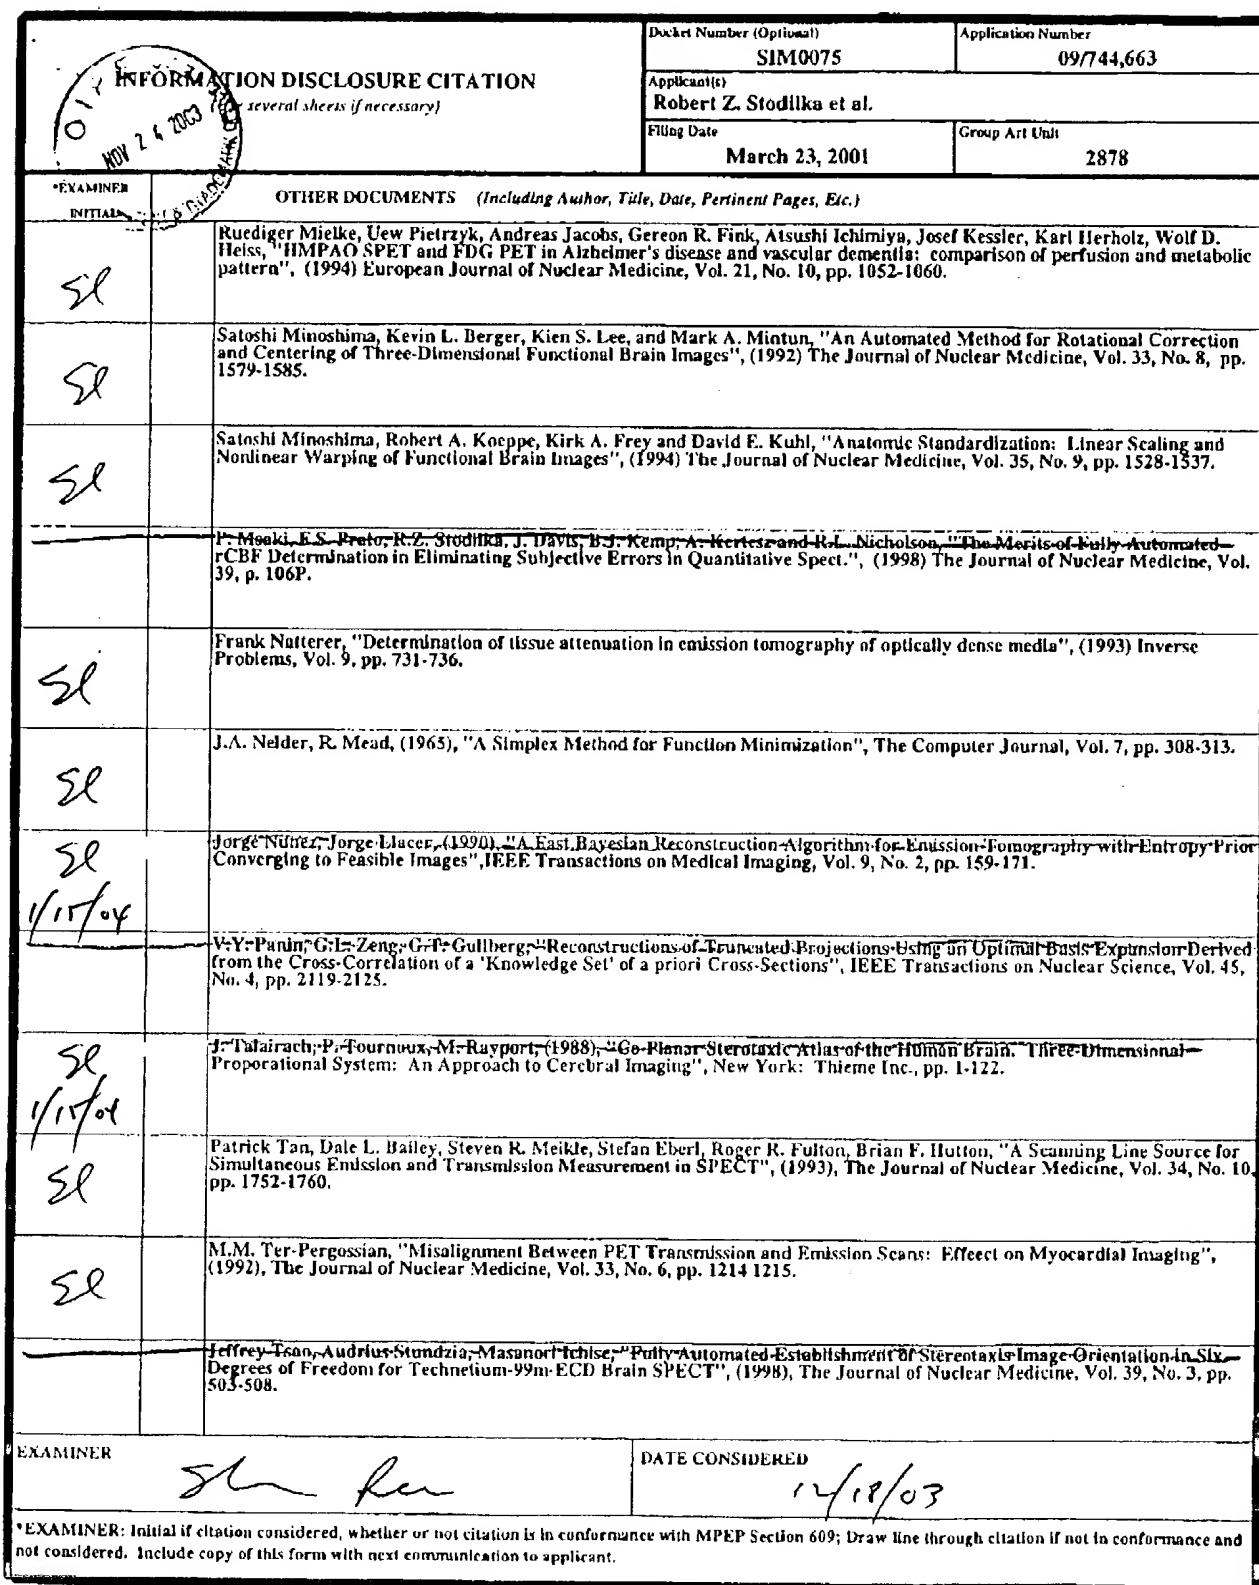 Docket Number (Optional)
SIM0075
Application Number
09/744,663
INFORMATION DISCLOSURE CITATION
several sheets if necessary)
Applicant(s)
Robert Z. Stodilka et al.
Filing Date
March 23, 2001
Group Art Unit
2878
OIPE
NOV 24 2003
*EXAMINER
INITIAL
OTHER DOCUMENTS (Including Author, Title, Date, Pertinent Pages, Etc.)
Sl
Ruediger Mielke, Uew Pietrzyk, Andreas Jacobs, Gereon R. Fink, Atsushi Ichimiya, Josef Kessler, Karl Herholz, Wolf D.
Heiss, "HMPAO SPET and FDG PET in Alzheimer's disease and vascular dementia: comparison of perfusion and metabolic
pattern", (1994) European Journal of Nuclear Medicine, Vol. 21, No. 10, pp. 1052-1060.
Sl
Satoshi Minoshima, Kevin L. Berger, Kien S. Lee, and Mark A. Mintun, "An Automated Method for Rotational Correction
and Centering of Three-Dimensional Functional Brain Images", (1992) The Journal of Nuclear Medicine, Vol. 33, No. 8, pp.
1579-1585.
Sl
Satoshi Minoshima, Robert A. Koeppe, Kirk A. Frey and David E. Kuhl, "Anatomic Standardization: Linear Scaling and
Nonlinear Warping of Functional Brain Images", (1994) The Journal of Nuclear Medicine, Vol. 35, No. 9, pp. 1528-1537.
P. Msaki, F.S. Prato, R.Z. Stodilka, J. Davis, B.J. Kemp, A. Kertesz and R.L. Nicholson, "The Merits of Fully Automated
rCBF Determination in Eliminating Subjective Errors in Quantitative Spect.", (1998) The Journal of Nuclear Medicine, Vol.
39, p. 106P.
Sl
Frank Natterer, "Determination of tissue attenuation in emission tomography of optically dense media", (1993) Inverse
Problems, Vol. 9, pp. 731-736.
Sl
J.A. Nelder, R. Mead, (1965), "A Simplex Method for Function Minimization", The Computer Journal, Vol. 7, pp. 308-313.
Sl
1/15/04
Jorge Nunez, Jorge Llacer, (1990), "A Fast Bayesian Reconstruction Algorithm for Emission Tomography with Entropy Prior
Converging to Feasible Images", IEEE Transactions on Medical Imaging, Vol. 9, No. 2, pp. 159-171.
V.Y. Panin, G.L. Zeng, G.T. Gullberg, "Reconstructions of Truncated Projections Using an Optimal Basis Expansion Derived
from the Cross-Correlation of a 'Knowledge Set' of a priori Cross-Sections", IEEE Transactions on Nuclear Science, Vol. 45,
No. 4, pp. 2119-2125.
Sl
1/15/04
J. Talairach, P. Tournoux, M. Rayport, (1988), "Co-Planar Sterotaxic Atlas of the Human Brain. Three-Dimensional
Proporational System: An Approach to Cerebral Imaging", New York: Thieme Inc., pp. 1-122.
Sl
Patrick Tan, Dale L. Bailey, Steven R. Meikle, Stefan Eberl, Roger R. Fulton, Brian F. Hutton, "A Scanning Line Source for
Simultaneous Emission and Transmission Measurement in SPECT", (1993), The Journal of Nuclear Medicine, Vol. 34, No. 10,
pp. 1752-1760.
Sl
M.M. Ter-Pergossian, "Misalignment Between PET Transmission and Emission Scans: Effeect on Myocardial Imaging",
(1992), The Journal of Nuclear Medicine, Vol. 33, No. 6, pp. 1214 1215.
Jeffrey Tsao, Audrius Stundzia, Masanori Ichise, "Fully Automated Establishment of Sterentaxis Image Orientation in Six
Degrees of Freedom for Technetium-99m-ECD Brain SPECT", (1998), The Journal of Nuclear Medicine, Vol. 39, No. 3, pp.
503-508.
EXAMINER
DATE CONSIDERED
12/18/03
*EXAMINER: Initial if citation considered, whether or not citation is in conformance with MPEP Section 609; Draw line through citation if not in conformance and
not considered. Include copy of this form with next communication to applicant.